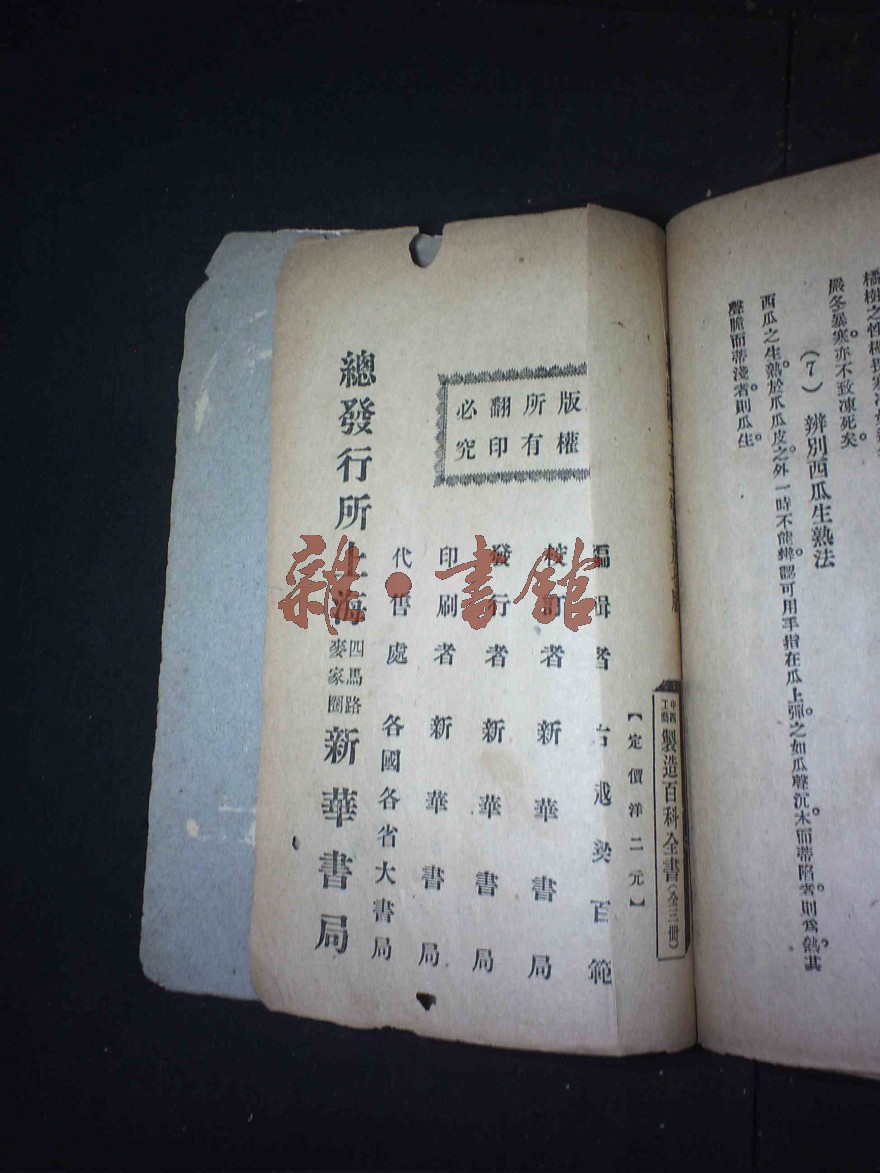 嚴冬暴寒亦不致凍死矣。
(7) 辨別西瓜生熟法
西瓜之生熟。於瓜瓜皮之外一時不能辨認。可用手指在瓜上彈之。如瓜聲沉木而蒂陷者。則爲熟。其
聲脆而蒂淺者。則瓜生。
中西
工商
製造百科全書(全三冊)
【定價洋二元】
版權
所有
翻印
必究
編輯者 古越 百範
校訂者 新華書局
發行者 新華書局
印刷者 新華書局
代售處 各國各省大書局
總發行所上海
四馬路
麥家圈
新華書局
雜·書館